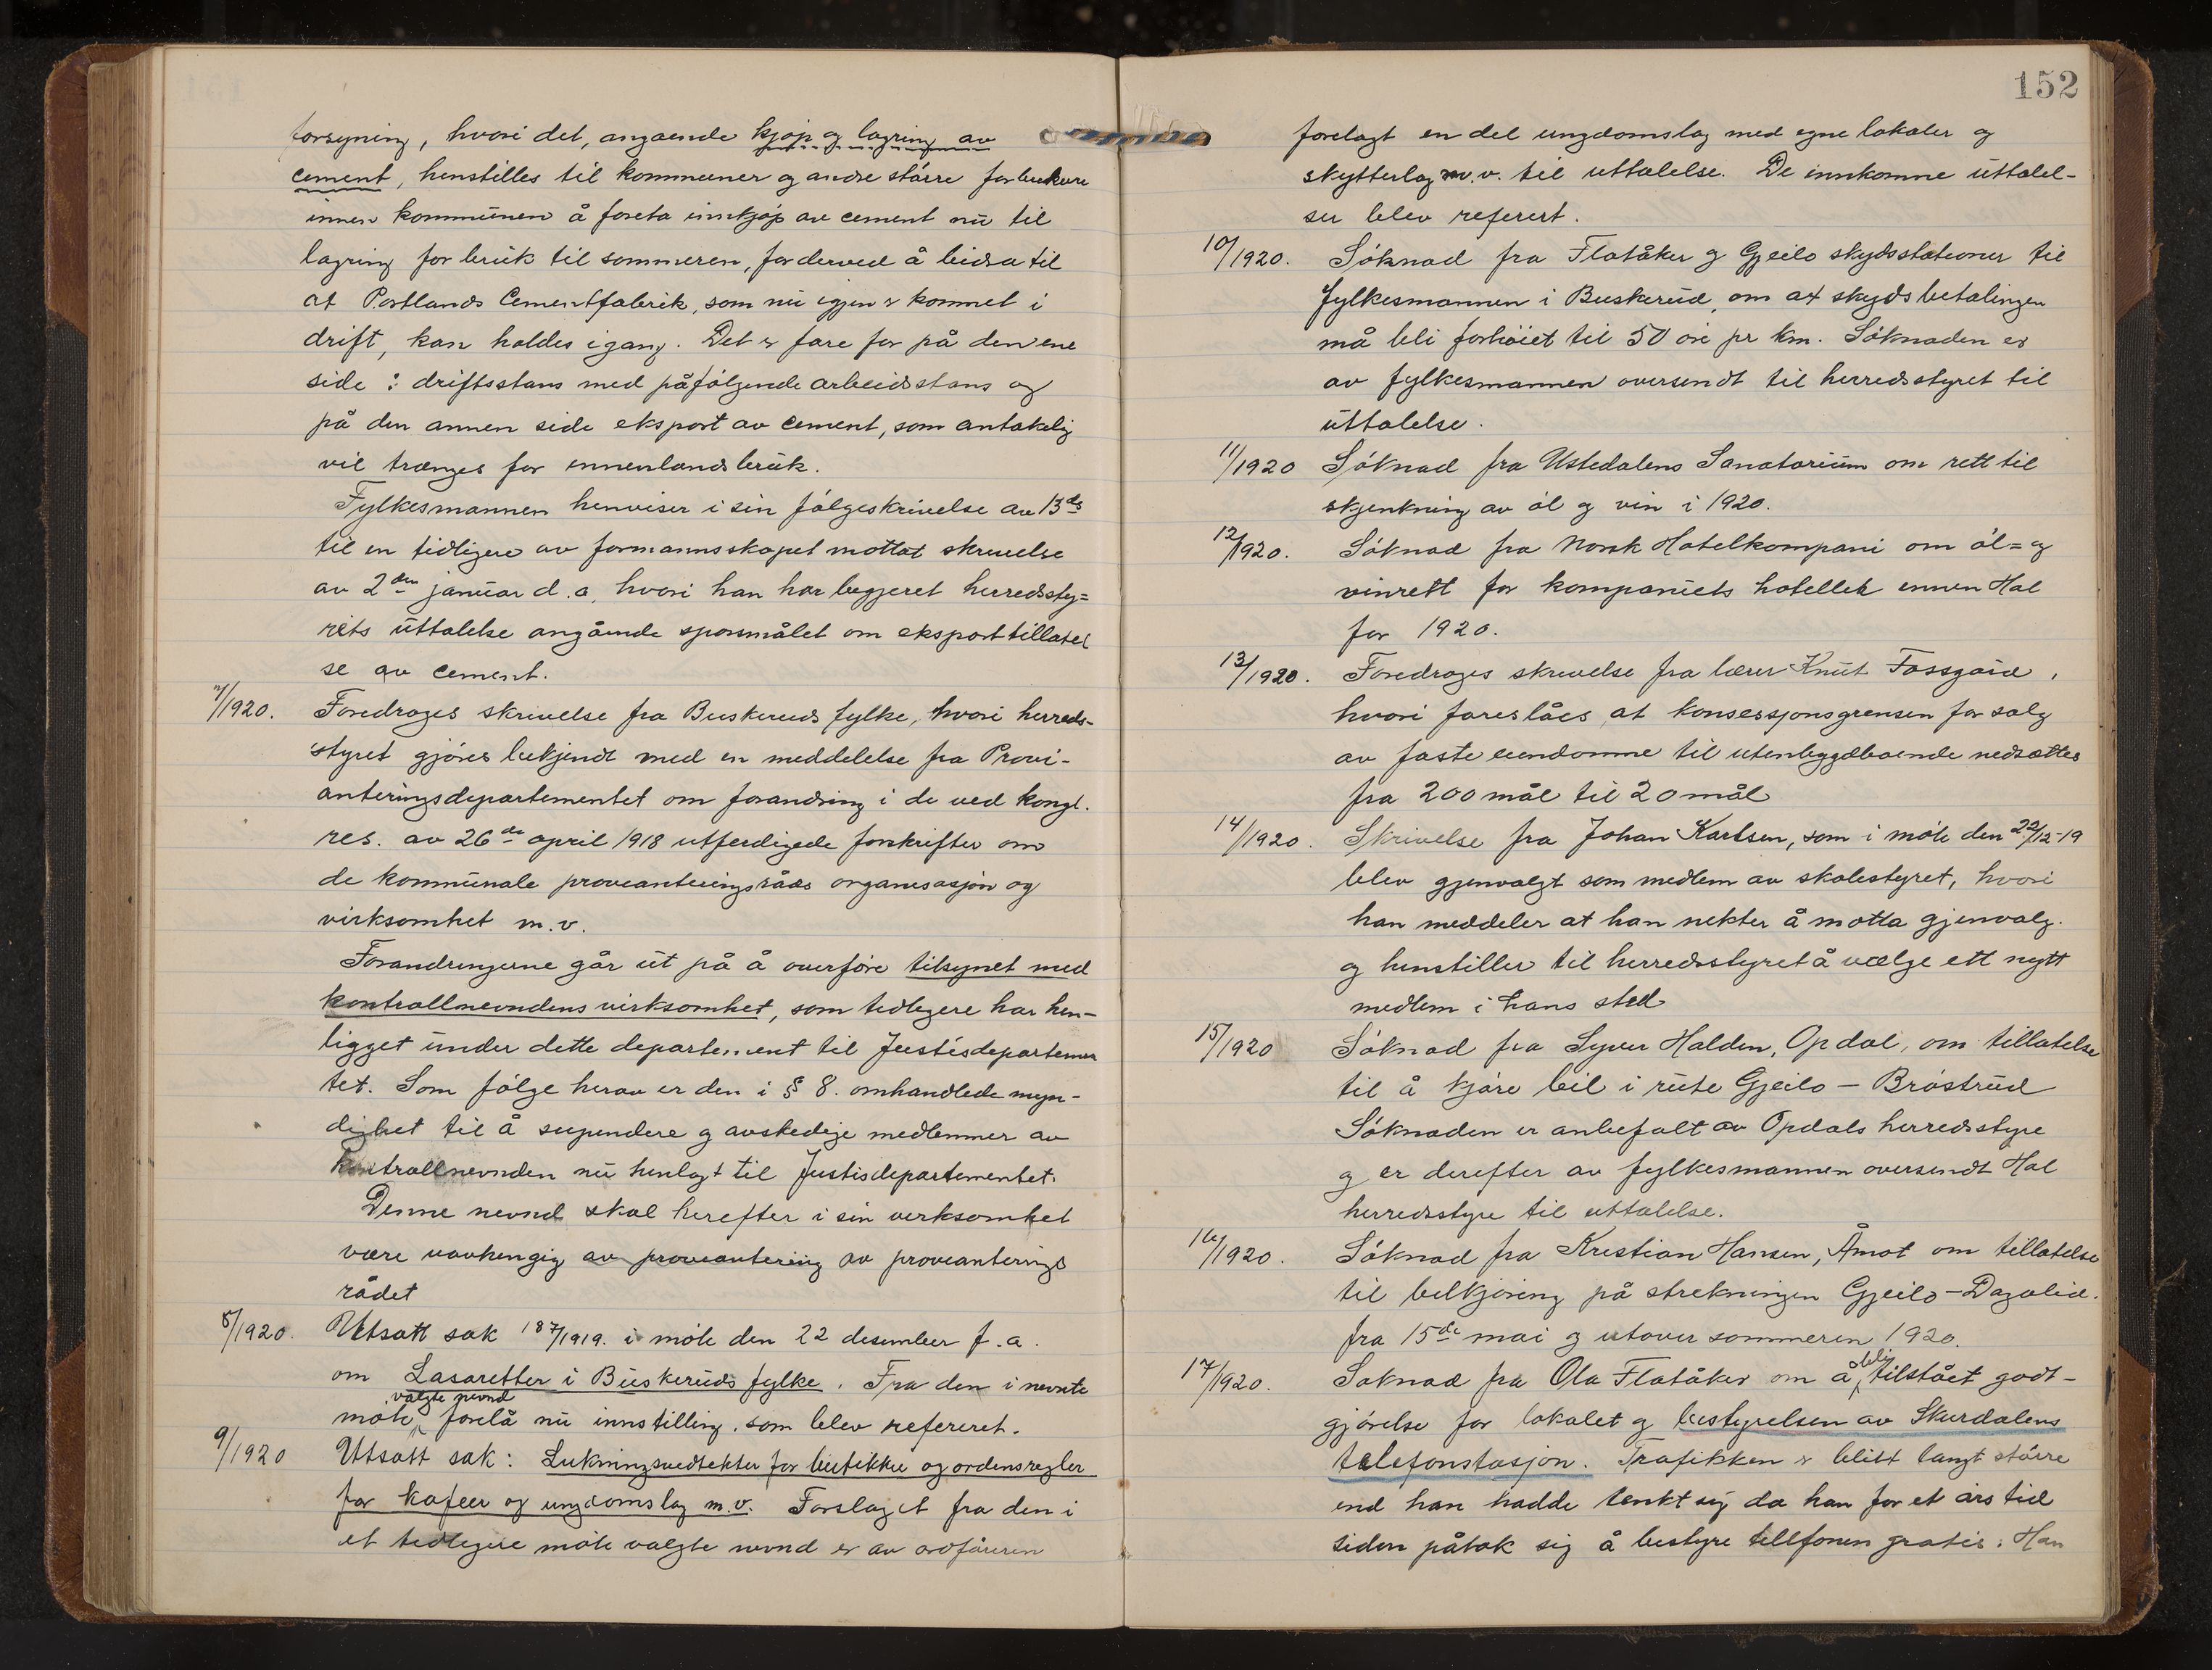 forsyning, hvori det, angaende kjøp og lagring av
cement, henstilles til kommuner og andre större forbrukere
innen kommunen å foreta innkjøp av cement nu til
lagring for bruk til sommeren, for derved å bidra til
at Portlands Cementfabrik, som nu igjen er kommet i
drift, kan holdes igang. Det er fare for på den ene
side : driftsstans med påfölgende arbeidsstans og
på den annen side eksport av cement, som antakelig
vil trænges for innenlandsbruk.
Fylkesmannen henviser i sin fölgeskrivelse av 13de
til en tidligere av formannsskapet mottat skrivelse
av 2den januar d.a. hvori han har begjeret herredssty=
rets uttalelse angående sporsmålet om eksporttillatel
se av cement.
7/1920. Foredrages skrivelse fra Buskeruds fylke, hvori herreds-
styret gjöres bekjendt med en meddelelse fra Provi-
anteringsdepartementet om forandring i de ved kongl.
res. av 26de april 1918 utferdigede forskrifter om
de kommunale provianteringsråds organisasjon og
virksomhet m.v.
Forandringerne går ut på å overföre tilsynet med
kontrollnevndens virksomhet, som tidligere har hen-
ligget under dette departement til Justisdepartemen
tet. Som fölge herav er den i § 8. omhandlede myn-
dighet til å supendere og avskedige medlemmer av
kontrollnevnden nu henlagt til Justisdepartementet.
Denne nevnd skal herefter i sin virksomhet
være uavhengig av proviantering av provianterings
rådet
8/1920. Utsatt sak 187/1919. i möte den 22 desember f.a.
om Lasaretter i Buskeruds fylke. Fra den i nevnte
valgte nevnd
möte forelå nu innstilling, som blev refereret.
9/1920 Utsatt sak: Lukningsvedtekter for butikker og ordensregler
for kafeer og ungdomslag m.v. Forslaget fra den i
et tidligere möte valgte nevnd er av ordföreren
152
forelagt en del ungdomslag med egne lokaler og
skytterlag m.v. til uttalelse. De innkomne uttalel-
ser blev referert.
10/1920. Söknad fra Flatåker og Gjeilo skydsstationer til
fylkesmannen i Buskerud, om at skydsbetalingen
må bli forhöiet til 50 öre pr km. Söknaden er
av fylkesmannen oversendt til herredsstyret til
uttalelse.
11/1920 Söknad fra Ustedalens Sanatorium om rett til
skjenkning av öl og vin i 1920.
12/1920. Söknad fra Norsk Hotelkompani om öl= og
vinrett for kompaniets hoteller innen Hol
for 1920.
13/1920. Foredrages skrivelse fra lærer Knut Fossgård,
hvori foreslåes at konsesjonsgrensen for salg
av faste eiendomme til utenbygdboende nedsættes
fra 200 mål til 20 mål
14/1920. Skrivelse fra Johan Karlsen, som i möte den 22/12-19
blev gjenvalgt som medlem av skolestyret, hvori
han meddeler at han nekter å motta gjenvalg.
og henstiller til herredsstyret å vælge ett nytt
medlem i hans sted
15/1920 Söknad fra Syver Halden, Opdal, om tillatelse
til å kjöre bil i rute Gjeilo — Bröstrud
Söknaden er anbefalt av Opdals herredsstyre
og er derefter av fylkesmannen oversendt Hol
herredsstyre til uttalelse.
16/1920. Söknad fra Kristian Hansen, Åmot om tillatelse
til bilkjöring på strekningen Gjeilo — Dagalid.
fra 15de mai og utover sommeren 1920.
17/1920. Soknad fra Ola Flatåker om å bli tilstået godt-
gjörelse for lokalet og bestyrelsen av Skurdalens
telefonstasjon. Trafikken er blitt langt större
end han hadde tenkt sig da han for et års tid
siden påtok sig å bestyre tellfonen gratis. Han